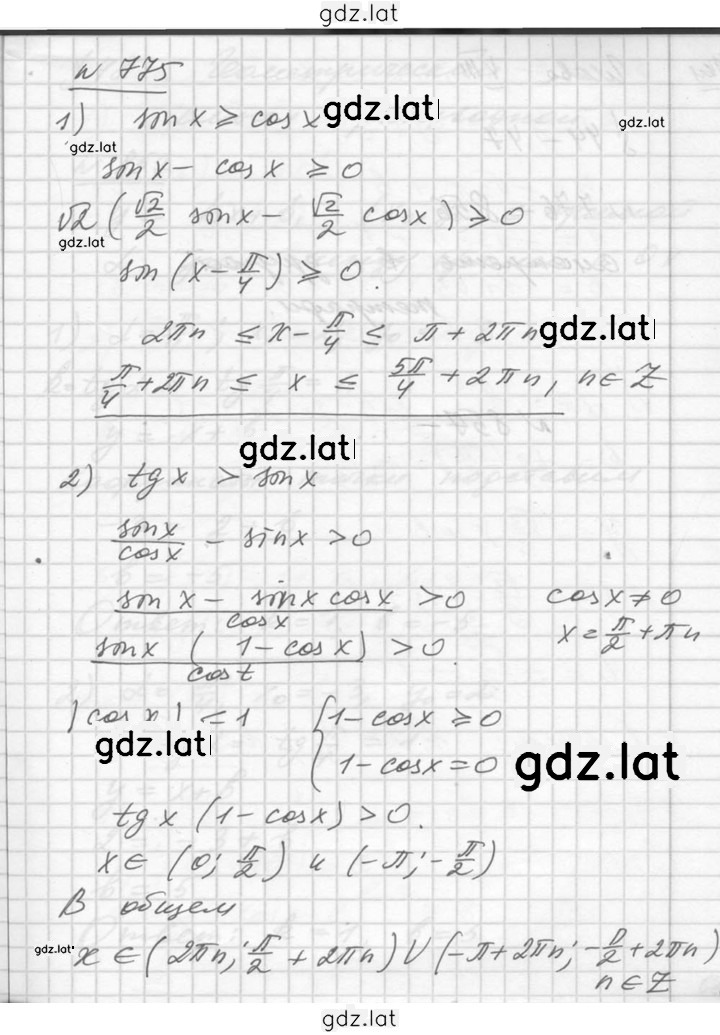 gdz.lat
n 775
gdz.lat
1) sin x ≥ cos x
gdz.lat
gdz.lat
sin x - cos x ≥ 0
√2 (√2/2 sin x - √2/2 cos x) ≥ 0
gdz.lat
sin (x - π/4) ≥ 0.
2πn ≤ x - π/4 ≤ π + 2πn
gdz.lat
π/4 + 2πn ≤ x ≤ 5π/4 + 2πn, n ∈ Z
gdz.lat
2) tg x > sin x
sin x/cos x - sin x > 0
sin x - sin x cos x/cos x > 0 cos x ≠ 0
sin x (1 - cos x)/cos t > 0. x = π/2 + πn
|cos x| ≤ 1 { 1 - cos x ≥ 0
gdz.lat
1 - cos x = 0
gdz.lat
tg x (1 - cos x) > 0.
x ∈ (0; π/2) и (-π; -π/2)
В общем
gdz.lat
x ∈ (2πn; π/2 + 2πn) U (-π + 2πn; -π/2 + 2πn)
n ∈ Z
gdz.lat